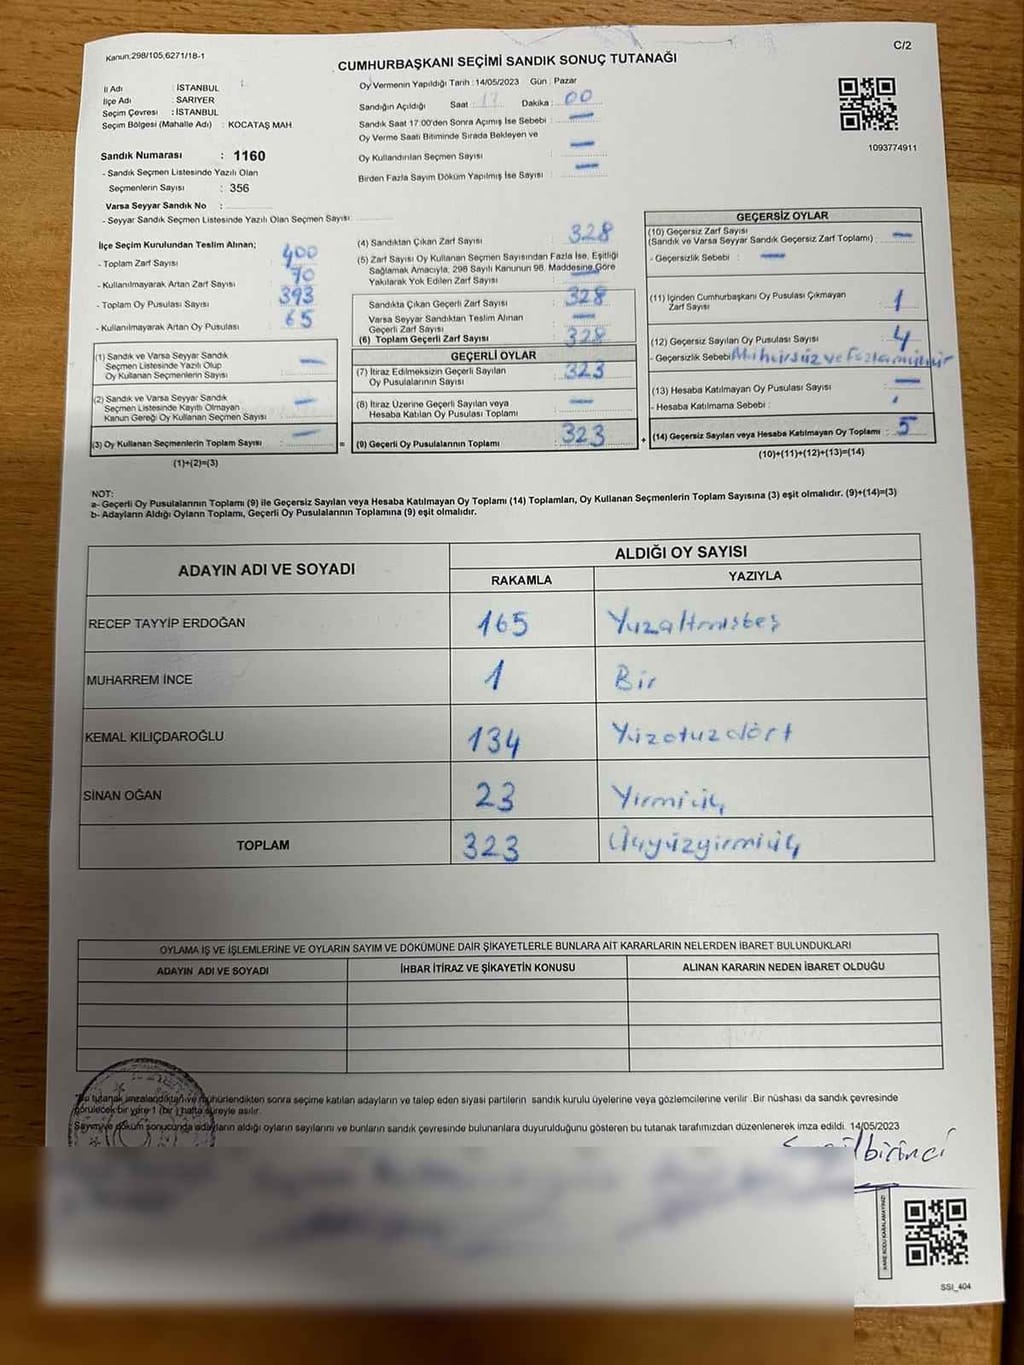 Kanun,298/105,6271/18-1
C/2
CUMHURBAŞKANI SEÇİMİ SANDIK SONUÇ TUTANAĞI
İl Adı : İSTANBUL
İlçe Adı : SARIYER
Seçim Çevresi : İSTANBUL
Seçim Bölgesi (Mahalle Adı) : KOCATAŞ MAH
Oy Vermenin Yapıldığı Tarih : 14/05/2023 Gün : Pazar
Sandığın Açıldığı Saat : 17 Dakika : 00
Sandık Saat 17.00'den Sonra Açımış İse Sebebi : —
Oy Verme Saati Bitiminde Sırada Bekleyen ve
Oy Kullandırılan Seçmen Sayısı : —
Birden Fazla Sayım Döküm Yapılmış İse Sayısı : —
1093774911
Sandık Numarası : 1160
- Sandık Seçmen Listesinde Yazılı Olan
Seçmenlerin Sayısı : 356
Varsa Seyyar Sandık No :
- Seyyar Sandık Seçmen Listesinde Yazılı Olan Seçmen Sayısı :
İlçe Seçim Kurulundan Teslim Alınan;
- Toplam Zarf Sayısı : 400
- Kullanılmayarak Artan Zarf Sayısı : 70
- Toplam Oy Pusulası Sayısı : 393
- Kullanılmayarak Artan Oy Pusulası : 65
(1) Sandık ve Varsa Seyyar Sandık
Seçmen Listesinde Yazılı Olup
Oy Kullanan Seçmenlerin Sayısı : —
(2) Sandık ve Varsa Seyyar Sandık
Seçmen Listesinde Kayıtlı Olmayan
Kanun Gereği Oy Kullanan Seçmen Sayısı : —
(3) Oy Kullanan Seçmenlerin Toplam Sayısı : — =
(1)+(2)=(3)
(4) Sandıktan Çıkan Zarf Sayısı : 328
(5) Zarf Sayısı Oy Kullanan Seçmen Sayısından Fazla İse, Eşitliği
Sağlamak Amacıyla, 298 Sayılı Kanunun 98. Maddesine Göre
Yakılarak Yok Edilen Zarf Sayısı : —
Sandıkta Çıkan Geçerli Zarf Sayısı : 328
Varsa Seyyar Sandıktan Teslim Alınan
Geçerli Zarf Sayısı : —
(6) Toplam Geçerli Zarf Sayısı : 328
GEÇERLİ OYLAR
(7) İtiraz Edilmeksizin Geçerli Sayılan
Oy Pusulalarının Sayısı : 323
(8) İtiraz Üzerine Geçerli Sayılan veya
Hesaba Katılan Oy Pusulası Toplamı : —
(9) Geçerli Oy Pusulalarının Toplamı : 323 +
GEÇERSİZ OYLAR
(10) Geçersiz Zarf Sayısı
(Sandık ve Varsa Seyyar Sandık Geçersiz Zarf Toplamı) : —
- Geçersizlik Sebebi : —
(11) İçinden Cumhurbaşkanı Oy Pusulası Çıkmayan
Zarf Sayısı : 1
(12) Geçersiz Sayılan Oy Pusulası Sayısı : 4
- Geçersizlik Sebebi : Mühürsüz ve Fazla mühür
(13) Hesaba Katılmayan Oy Pusulası Sayısı : —
- Hesaba Katılmama Sebebi :
(14) Geçersiz Sayılan veya Hesaba Katılmayan Oy Toplamı : 5
(10)+(11)+(12)+(13)=(14)
NOT:
a- Geçerli Oy Pusulalarının Toplamı (9) ile Geçersiz Sayılan veya Hesaba Katılmayan Oy Toplamı (14) Toplamları, Oy Kullanan Seçmenlerin Toplam Sayısına (3) eşit olmalıdır. (9)+(14)=(3)
b- Adayların Aldığı Oyların Toplamı, Geçerli Oy Pusulalarının Toplamına (9) eşit olmalıdır.
ADAYIN ADI VE SOYADI
ALDIĞI OY SAYISI
RAKAMLA YAZIYLA
RECEP TAYYİP ERDOĞAN 165 Yüzaltmışbeş
MUHARREM İNCE 1 Bir
KEMAL KILIÇDAROĞLU 134 Yüzotuzdört
SİNAN OĞAN 23 Yirmiüç
TOPLAM 323 Üçyüzyirmiüç
OYLAMA İŞ VE İŞLEMLERİNE VE OYLARIN SAYIM VE DÖKÜMÜNE DAİR ŞİKAYETLERLE BUNLARA AİT KARARLARIN NELERDEN İBARET BULUNDUKLARI
ADAYIN ADI VE SOYADI İHBAR İTİRAZ VE ŞİKAYETİN KONUSU ALINAN KARARIN NEDEN İBARET OLDUĞU
*Bu tutanak imzalandıktan ve mühürlendikten sonra seçime katılan adayların ve talep eden siyasi partilerin sandık kurulu üyelerine veya gözlemcilerine verilir. Bir nüshası da sandık çevresinde
görülecek bir yere 1 (bir) hafta süreyle asılır.
Sayım ve döküm sonucunda adayların aldığı oyların sayılarını ve bunların sandık çevresinde bulunanlara duyurulduğunu gösteren bu tutanak tarafımızdan düzenlenerek imza edildi. 14/05/2023
birinci
KARE KODU KARALAMAYINIZ!
SSI_404